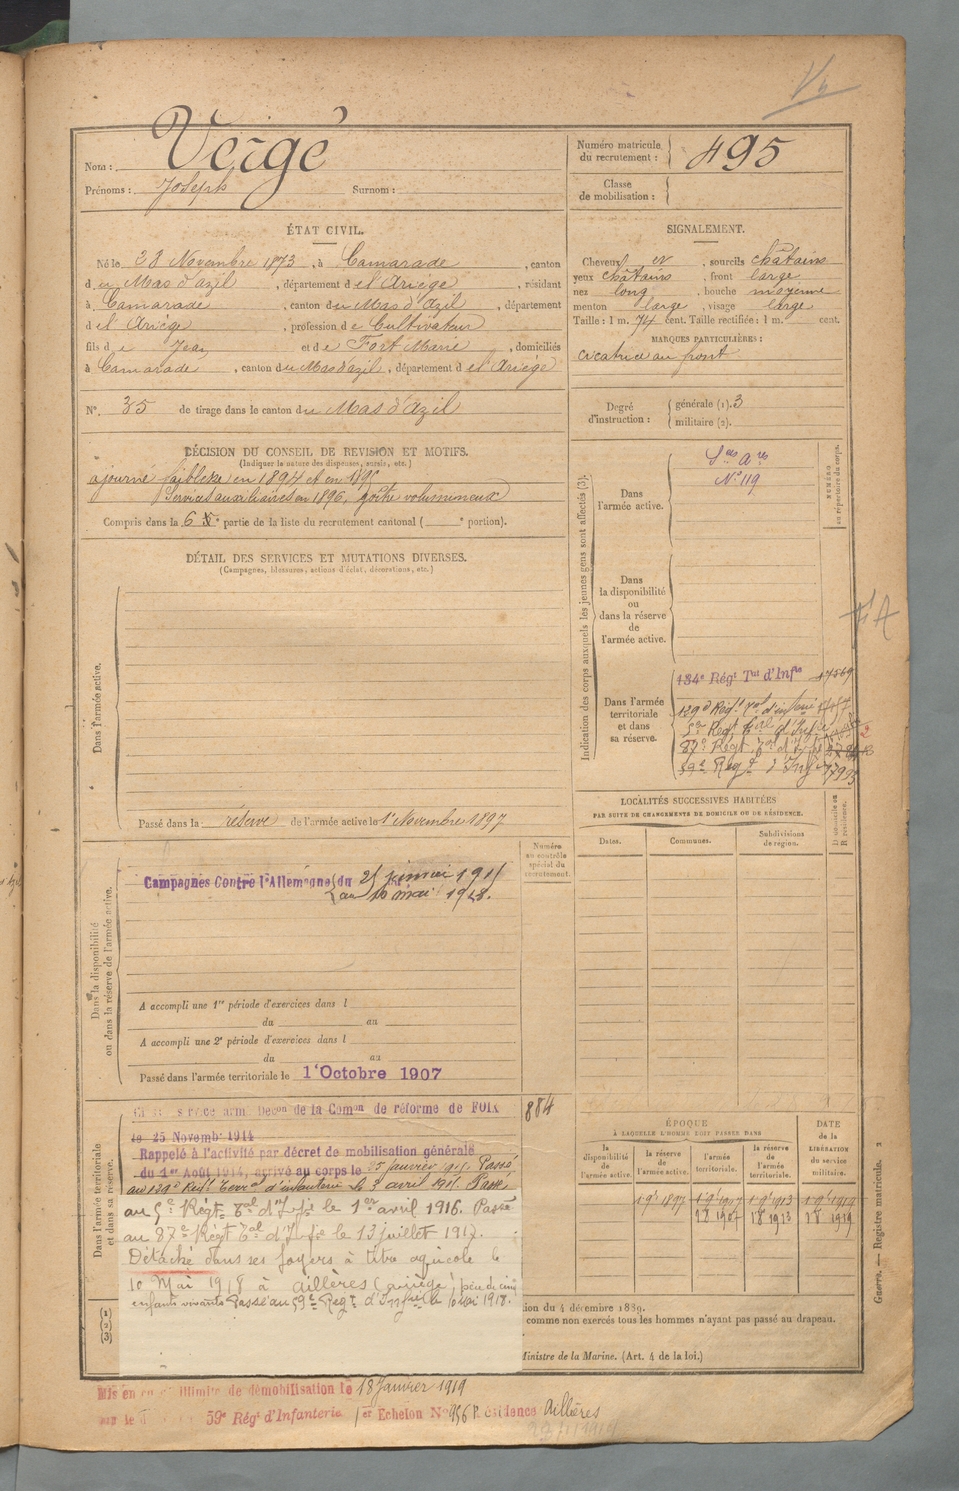 Vergé
Nom :
Prénoms : Joseph Surnom :
Numéro matricule du recrutement : 495
Classe de mobilisation :
ÉTAT CIVIL.
Né le 28 Novembre 1873, à Camarade, canton
du Mas d'azil, département de l'Ariège, résidant
à Camarade, canton du Mas d'Azil, département
de l'Ariège, profession de Cultivateur
fils de Jean et de Fort Marie, domiciliés
à Camarade, canton du Mas d'azil, département de l'Ariège
N° 35 de tirage dans le canton du Mas d'Azil
SIGNALEMENT.
Cheveux et, sourcils châtains
yeux châtains, front large
nez long, bouche moyenne
menton large, visage large
Taille : 1 m. 74 cent. Taille rectifiée : 1 m. cent.
MARQUES PARTICULIÈRES :
cicatrice au front
Degré d'instruction :
générale (1). 3
militaire (2).
DÉCISION DU CONSEIL DE REVISION ET MOTIFS.
(Indiquer la nature des dispenses, sursis, etc.)
ajourné faiblesse en 1894 et en 1895
Services auxiliaires en 1896, goître volumineux
Compris dans la 6e partie de la liste du recrutement cantonal ( e portion).
DÉTAIL DES SERVICES ET MUTATIONS DIVERSES.
(Campagnes, blessures, actions d'éclat, décorations, etc.)
Dans l'armée active.
Passé dans la réserve de l'armée active le 1er Novembre 1897
Indication des corps auxquels les jeunes gens sont affectés (3).
NUMÉRO au répertoire du corps.
Dans l'armée active.
Sces Ares
N° 119
Dans la disponibilité ou dans la réserve de l'armée active.
Dans l'armée territoriale et dans sa réserve.
134e Régt Tal d'Infie
139e Régt
5e Régt Tal d'Infie
87e Régt Tal d'Infie
59e Régt d'Infie
LOCALITÉS SUCCESSIVES HABITÉES
PAR SUITE DE CHANGEMENTS DE DOMICILE OU DE RÉSIDENCE.
Dates. Communes. Subdivisions de région. D domicile ou R résidence.
Dans la disponibilité ou dans la réserve de l'armée active.
Numéro au contrôle spécial du recrutement.
Campagnes Contre l'Allemagne du 25 janvier 1915
au 10 mai 1918.
A accompli une 1re période d'exercices dans l
du au
A accompli une 2e période d'exercices dans l
du au
Passé dans l'armée territoriale le 1er Octobre 1907
884
Dans l'armée territoriale et dans sa réserve.
service armé Décon de la Comon de réforme de FOIX
le 25 Novembre 1914
Rappelé à l'activité par décret de mobilisation générale
du 1er Août 1914, arrivé au corps le 25 janvier 1915. Passé
au 139e Régt Terral d'infanterie le 3 avril 1915. Passé
au 5e Régt Tal d'Infie le 1er avril 1916. Passé
au 87e Régt Tal d'Infie le 13 juillet 1917.
Détaché dans ses foyers à titre agricole le
10 Mai 1918 à Aillères (ariège) père de cinq
enfants vivants Passé au 59e Régt d'Infie le 10 Mai 1918.
(1)
(2)
(3)
ÉPOQUE
À LAQUELLE L'HOMME DOIT PASSER DANS
la disponibilité de l'armée active. la réserve de l'armée active. l'armée territoriale. la réserve de l'armée territoriale.
DATE de la LIBÉRATION du service militaire.
ion du 4 décembre 1889.
comme non exercés tous les hommes n'ayant pas passé au drapeau.
Ministre de la Marine. (Art. 4 de la loi.)
Guerre. — Registre matricule. 2
Mis en illimité de démobilisation le 18 Janvier 1919
59e Régt d'Infanterie 1er Echelon N° 956 Résidence Aillères